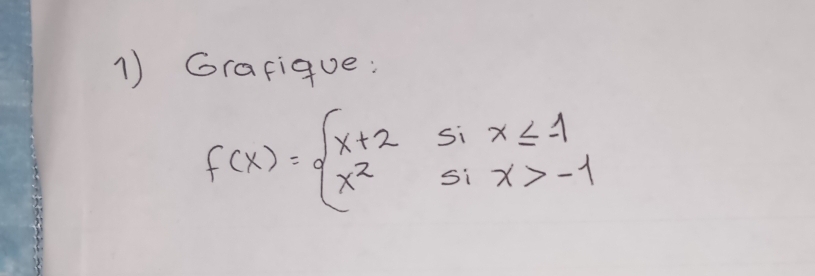 1) Grafique:
f(x) = { x+2 si x ≤ -1
x² si x > -1